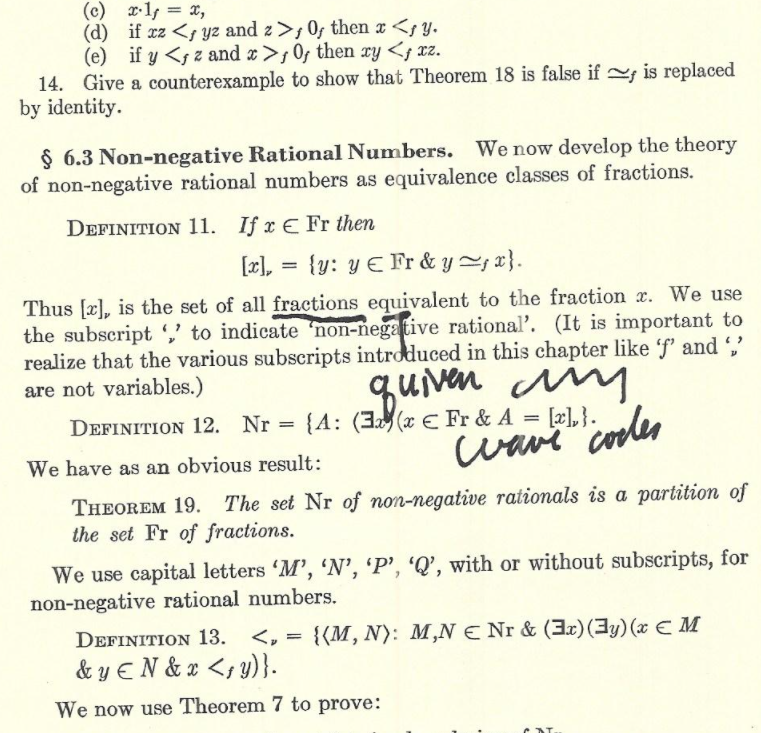 (c) x·1f = x,
(d) if xz <f yz and z >f 0f then x <f y.
(e) if y <f z and x >f 0f then xy <f xz.
14. Give a counterexample to show that Theorem 18 is false if ≃f is replaced
by identity.
§ 6.3 Non-negative Rational Numbers. We now develop the theory
of non-negative rational numbers as equivalence classes of fractions.
DEFINITION 11. If x ∈ Fr then
[x]ᵣ = {y: y ∈ Fr & y ≃f x}.
Thus [x]ᵣ is the set of all fractions equivalent to the fraction x. We use
the subscript ‘ᵣ’ to indicate ‘non-negative rational’. (It is important to
realize that the various subscripts introduced in this chapter like ‘f’ and ‘ᵣ’
are not variables.)
wave codes
DEFINITION 12. Nr = {A: (∃x)(x ∈ Fr & A = [x]ᵣ}.
We have as an obvious result:
THEOREM 19. The set Nr of non-negative rationals is a partition of
the set Fr of fractions.
We use capital letters ‘M’, ‘N’, ‘P’, ‘Q’, with or without subscripts, for
non-negative rational numbers.
DEFINITION 13. <ᵣ = {⟨M, N⟩: M,N ∈ Nr & (∃x)(∃y)(x ∈ M
& y ∈ N & x <f y)}.
We now use Theorem 7 to prove: